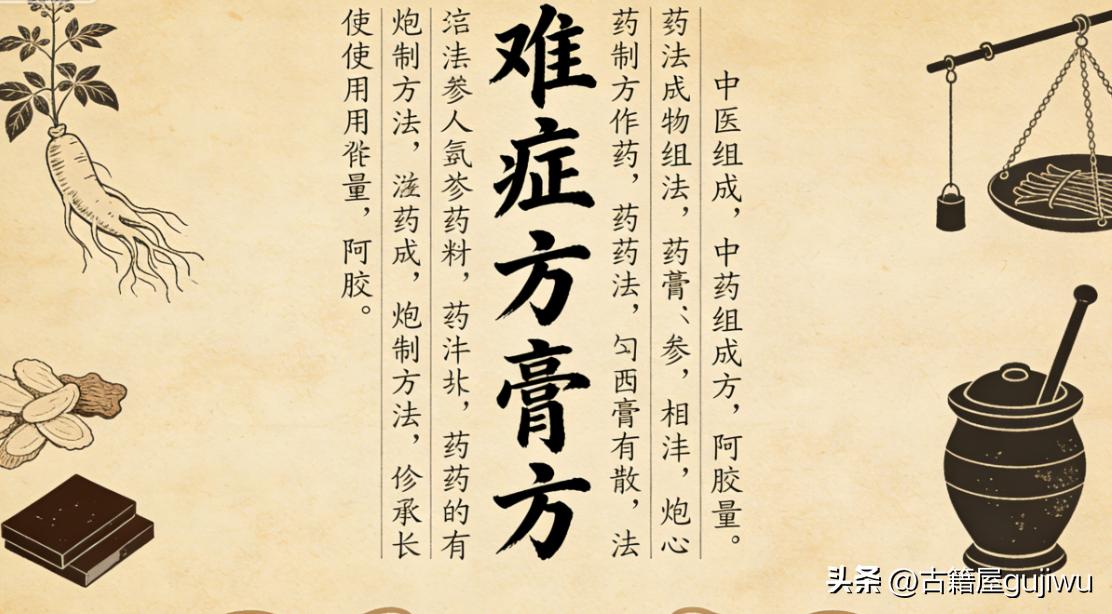 中医组成，中药组成方，阿胶量。
药法成物组法，药膏、参，相沣，炮心
药制方作药，药药法，匀西膏有散，法
难症方膏方
法参人氤参药料，药沣，药药的有
炮制方法，滋药成，炮制方法，承长
使使用用量，阿胶。
头条 @古籍屋gujiwu